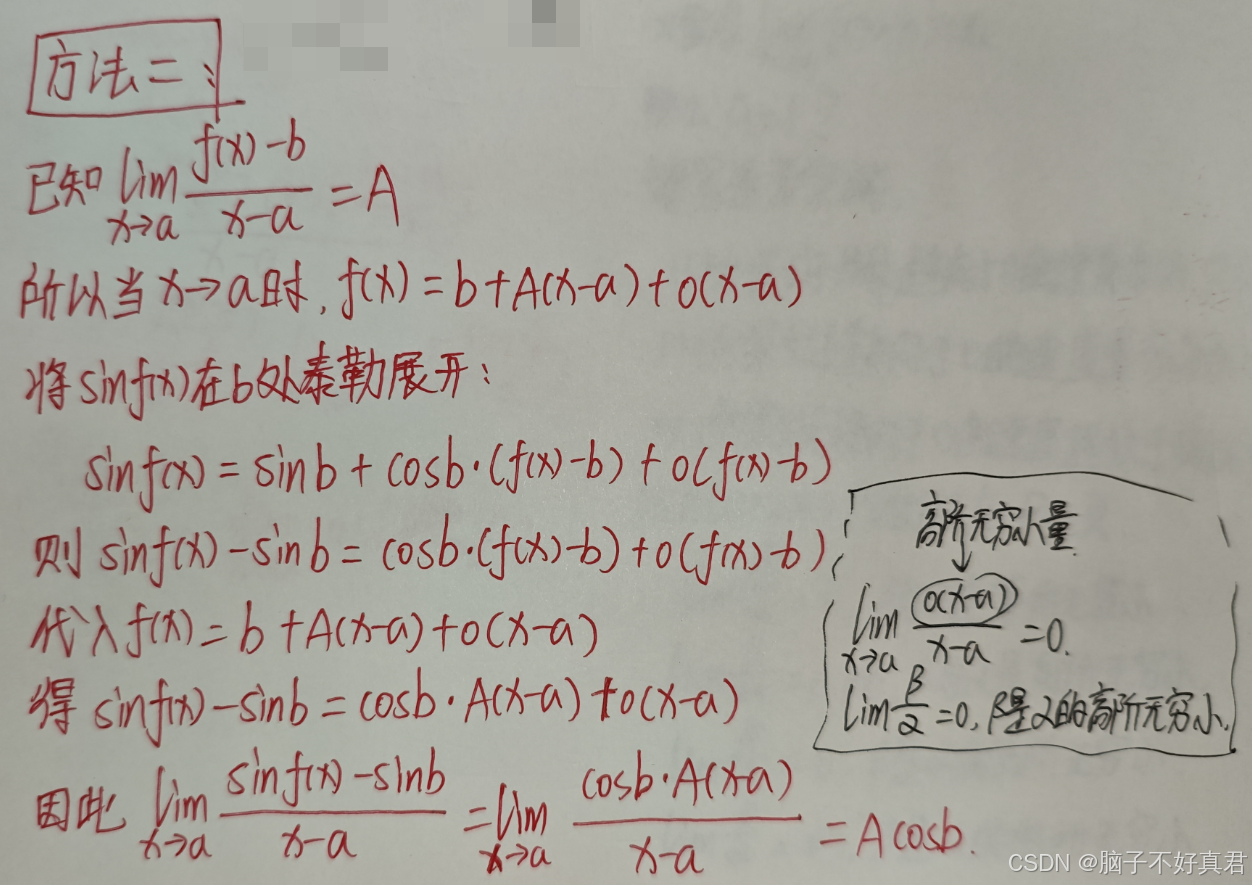 方法二:
已知 lim_{x→a} (f(x)-b)/(x-a) = A
所以当 x→a时, f(x) = b+A(x-a)+o(x-a)
将sinf(x)在b处泰勒展开:
sinf(x) = sinb + cosb·(f(x)-b) + o(f(x)-b)
则 sinf(x)-sinb = cosb·(f(x)-b)+o(f(x)-b)
代入f(x) = b+A(x-a)+o(x-a)
得 sinf(x)-sinb = cosb·A(x-a)+o(x-a)
因此 lim_{x→a} (sinf(x)-sinb)/(x-a) = lim_{x→a} (cosb·A(x-a))/(x-a) = Acosb.
高阶无穷小量
↓
lim_{x→a} o(x-a)/(x-a) = 0.
lim β/α = 0, β是α的高阶无穷小.
CSDN @脑子不好真君